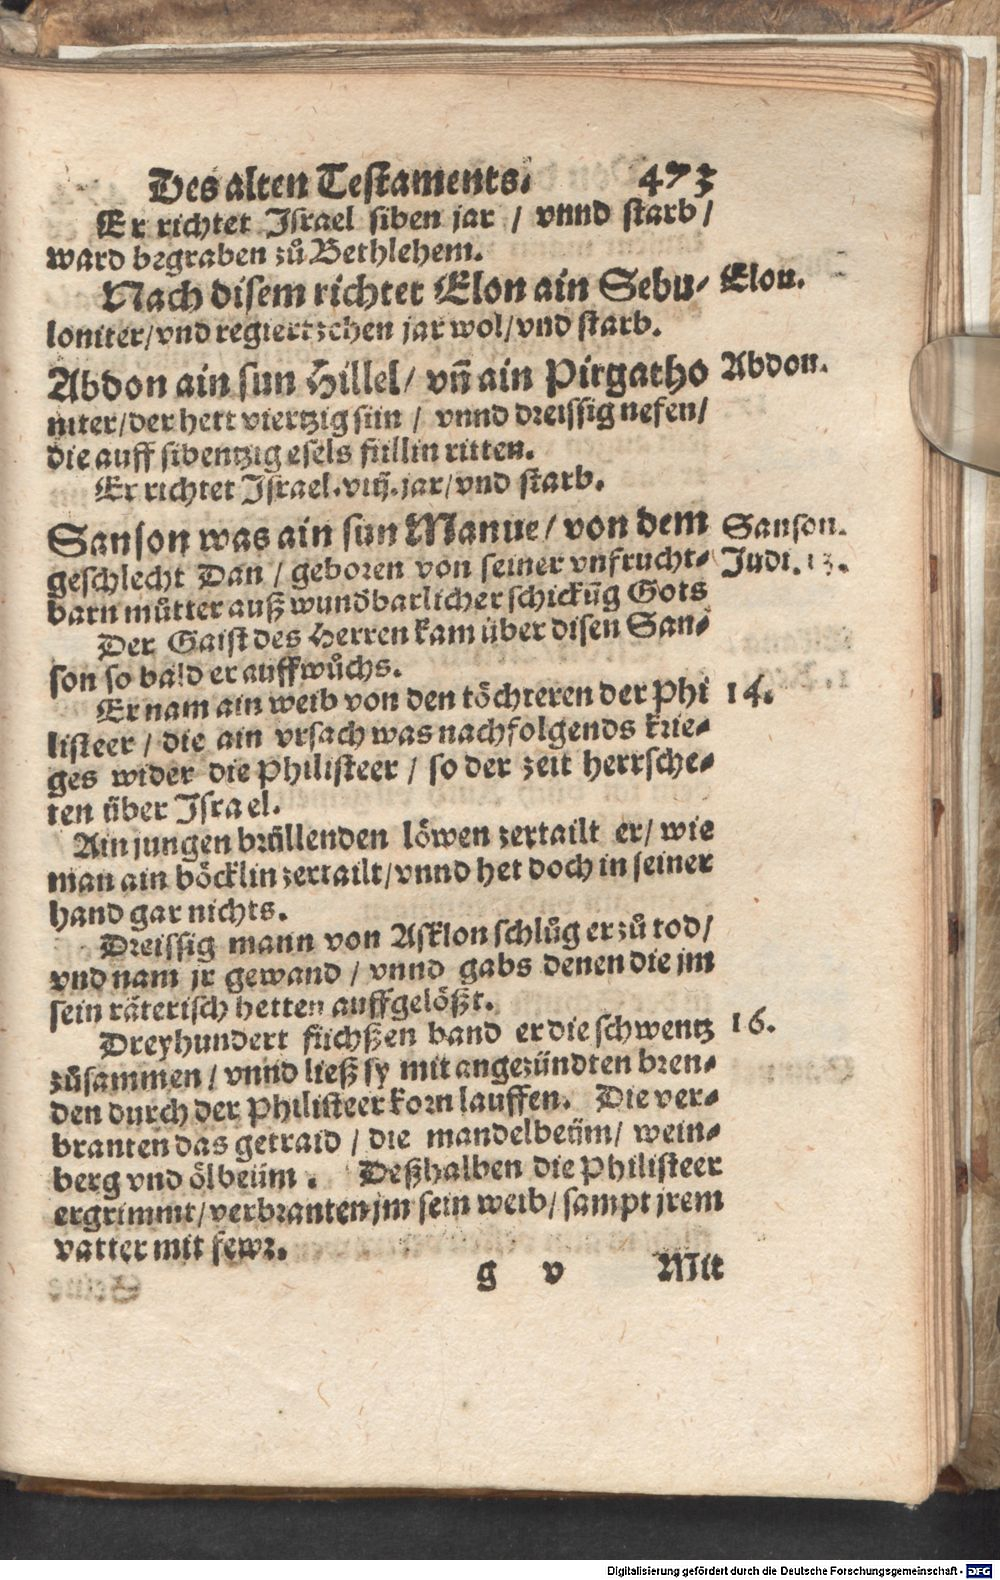 Des alten Testaments. 473
Er richtet Israel siben jar / vnnd starb /
ward begraben zů Bethlehem.
Nach disem richtet Elon ain Sebu- Elon.
loniter/vnd regiert zehen jar wol/vnd starb.
Abdon ain sun Hillel/ vñ ain Pirgatho Abdon.
niter/der hett viertzig sün / vnnd dreissig nefen/
die auff sibentzig esels füllin ritten.
Er richtet Israel.viij.jar/vnd starb.
Sanson was ain sun Manue/ von dem Sanson.
geschlecht Dan / geboren von seiner vnfrucht- Judi. 13.
barn můtter auß wundbarlicher schickūg Gots
Der Gaist des Herren kam über disen San-
son so bald er auffwůchs.
Er nam ain weib von den töchteren der Phi 14.
listeer / die ain vrsach was nachfolgends krie-
ges wider die Philisteer / so der zeit herrsche-
ten über Israel.
Ain jungen brüllenden löwen zertailt er/ wie
man ain böcklin zertailt/vnnd het doch in seiner
hand gar nichts.
Dreissig mann von Asklon schlůg er zů tod/
vnd nam jr gewand / vnnd gabs denen die jm
sein räterisch hetten auffgelößt.
Dreyhundert füchßen band er die schwentz 16.
zůsammen / vnnd ließ sy mit angezündten bren-
den durch der Philisteer korn lauffen. Die ver-
branten das getraid / die mandelbeüm/ wein-
berg vnd ölbeüm. Deßhalben die Philisteer
ergrimmt/verbranten jm sein weib/ sampt jrem
vatter mit fewr.
g v Mit
Digitalisierung gefördert durch die Deutsche Forschungsgemeinschaft - DFG